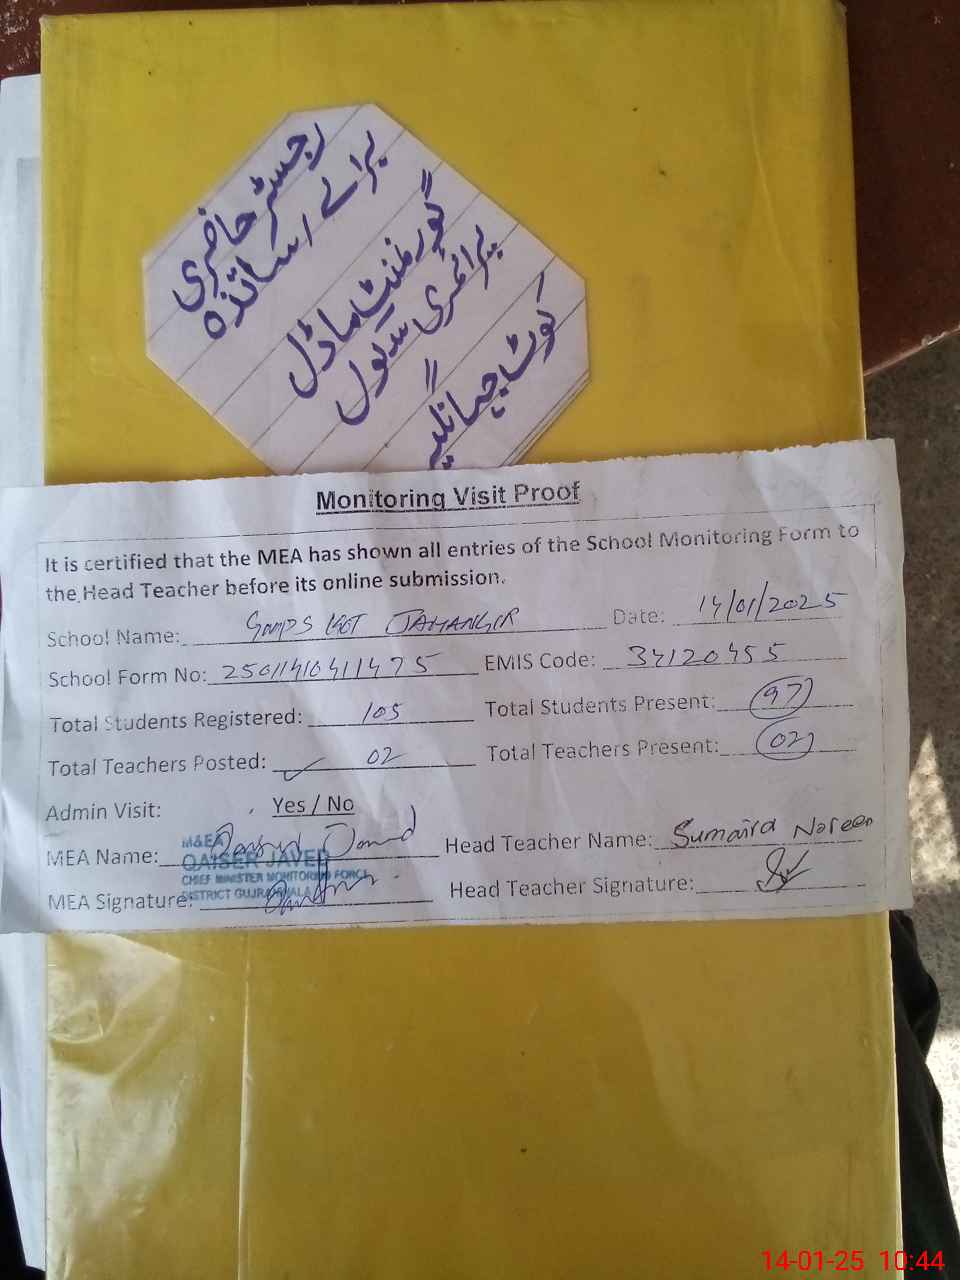 رجسٹر حاضری
برائے اساتذہ
گورنمنٹ ماڈل
پرائمری سکول
کوٹ جہانگیر
Monitoring Visit Proof
It is certified that the MEA has shown all entries of the School Monitoring Form to
the Head Teacher before its online submission.
School Name: GMPS KOT JAHANGIR Date: 14/01/2025
School Form No: 25011410411475 EMIS Code: 34120455
Total Students Registered: 105 Total Students Present: 97
Total Teachers Posted: ✓ 02 Total Teachers Present: 02
Admin Visit: Yes / No
MEA Name: Head Teacher Name: Sumaira Noreen
M&EA
QAISER JAVED
CHIEF MINISTER MONITORING FORCE
DISTRICT GUJRANWALA
MEA Signature: Head Teacher Signature:
14-01-25 10:44